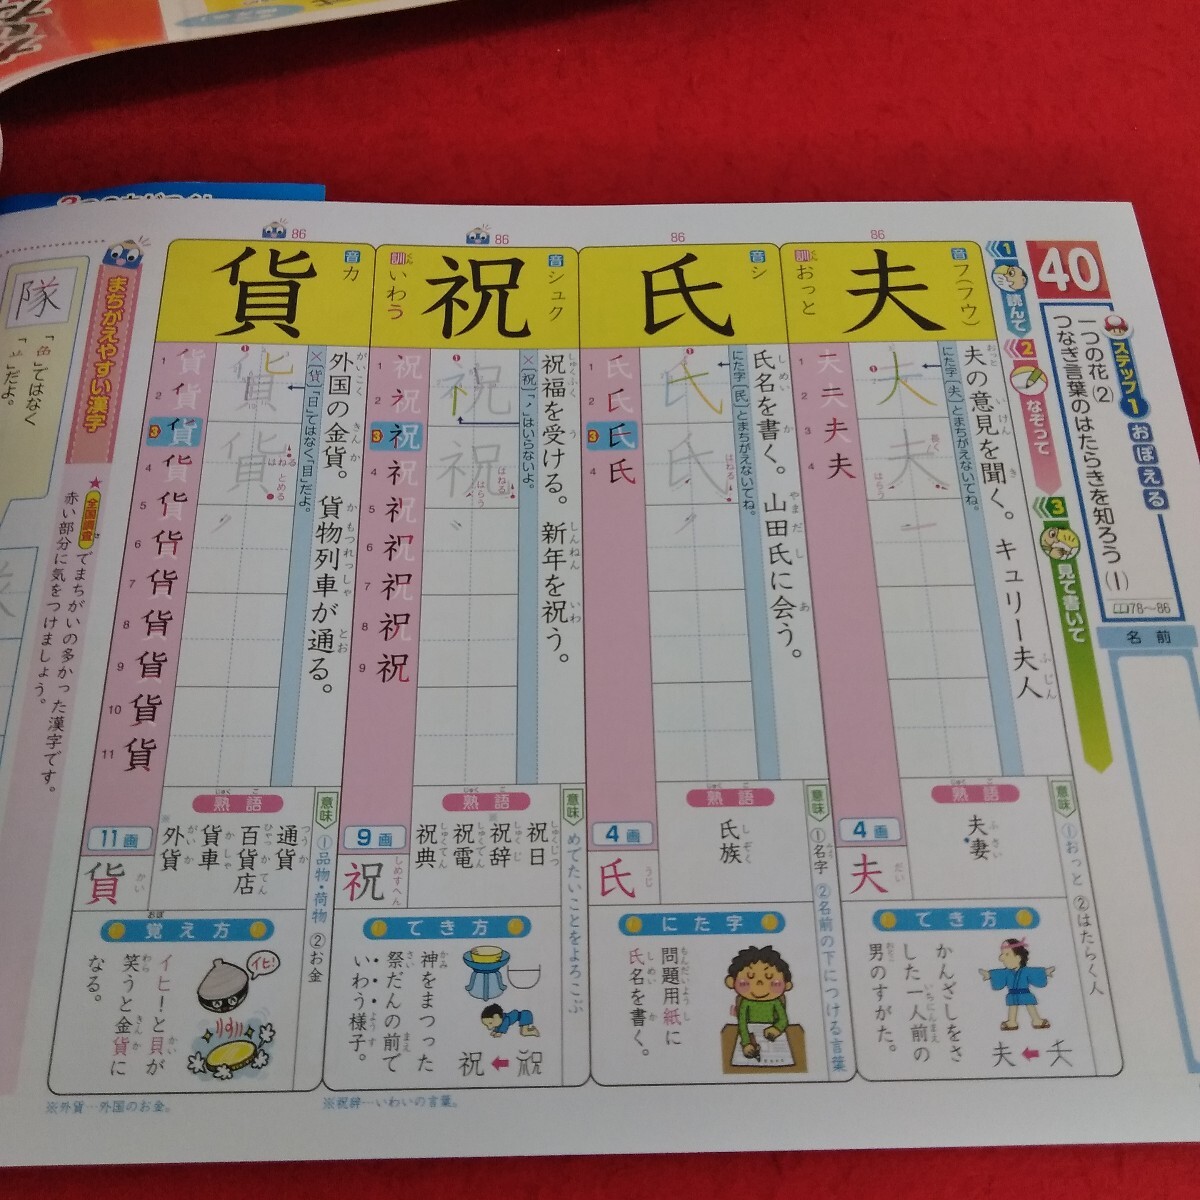 40
ステップ1 おぼえる
一つの花(2)
つなぎ言葉のはたらきを知ろう(1)
78〜86
名前
1 読んで
2 なぞって
3 見て書いて
86
夫
音 フ(フウ)
訓 おっと
夫の意見を聞く。 キュリー夫人
にた字〔失〕とまちがえないでね。
1 2 3 4
4画
夫 だい
意味 ①おっと ②はたらく人
熟語
夫妻
でき方
かんざしをさ
した一人前の
男のすがた。
86
氏
音 シ
氏名を書く。 山田氏に会う。
1 2 3 4
4画
氏 うじ
意味 ①名字 ②名前の下につける言葉
熟語
氏族
にた字
問題用紙に
氏名を書く。
86
祝
音 シュク
訓 いわう
祝福を受ける。 新年を祝う。
1 2 3 4 5 6 7 8 9
9画
祝 しめすへん
意味 めでたいことをよろこぶ
熟語
祝日
祝辞
祝電
祝典
でき方
神をまつった
祭だんの前で
いわう様子。
※祝辞…いわいの言葉。
86
貨
音 カ
外国の金貨。 貨物列車が通る。
はねる
とめる
1 2 3 4 5 6 7 8 9 10 11
11画
貨 かい
意味 ①品物・荷物 ②お金
熟語
通貨
百貨店
貨車
外貨
覚え方
イヒ!と貝が
笑うと金貨に
なる。
イヒ!
※外貨…外国のお金。
まちがえやすい漢字
★全国調査でまちがいの多かった漢字です。
赤い部分に気をつけましょう。
隊